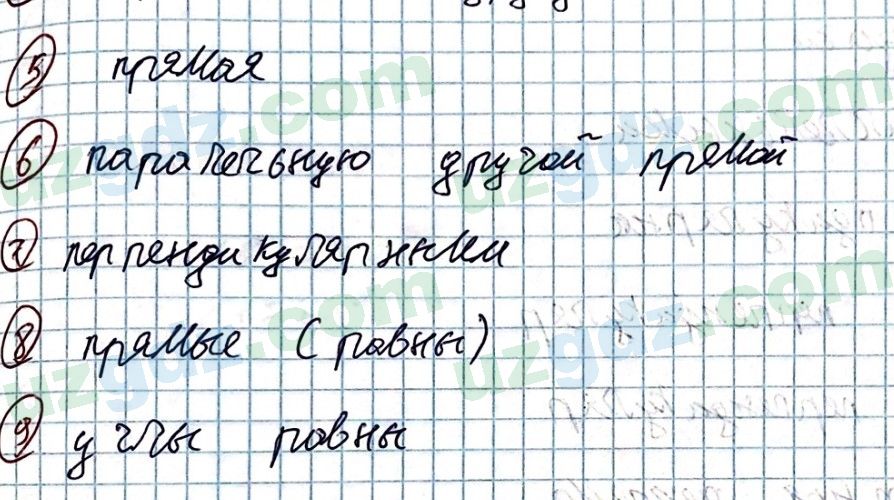 5 прямая
6 паралельную другой прямой
7 перпендикулярными
8 прямые (равны)
9 углы равны
uzgdz.com